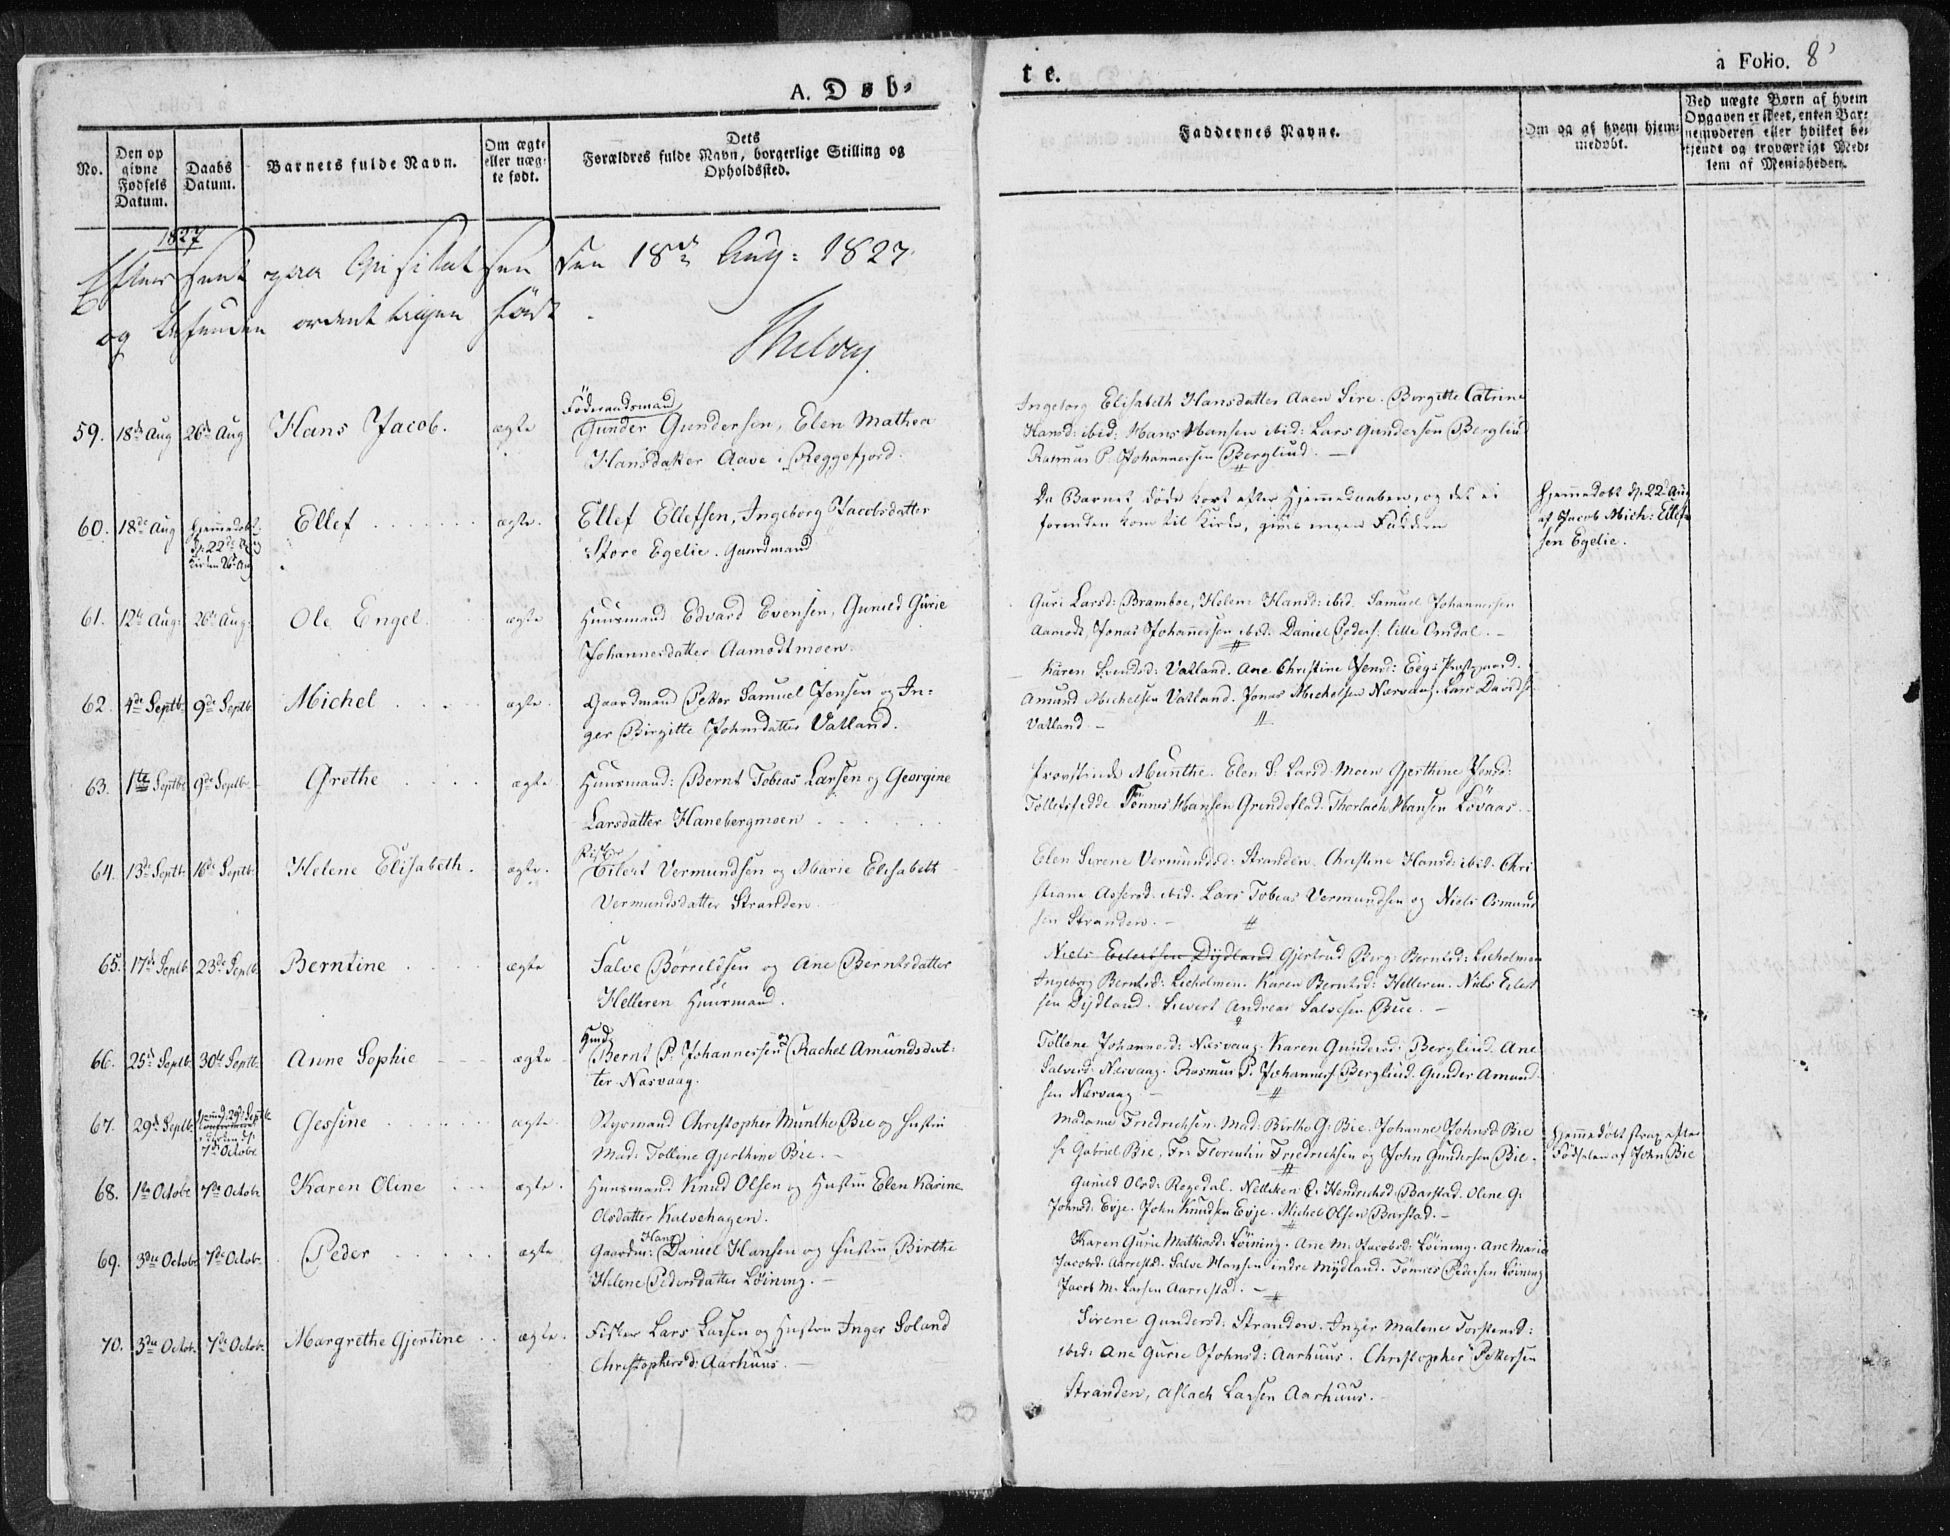 A. Døb-
te.
a Folio. 8
No.
Den op
givne
Fødsels
Datum.
Daabs
Datum.
Barnets fulde Navn.
Om ægte
eller uæg-
te født.
Dets
Forældres fulde Navn, borgerlige Stilling og
Opholdssted.
Faddernes Navne.
Om og af hvem hjem-
medøbt.
Ved uægte Børn af hvem
Opgaven er skeet, enten Bar-
nemoderen eller hvilket be-
kjendt og troværdigt Med-
lem af Menigheden.
1827
Efterseet paa Visitatsen den 18de Aug: 1827.
og befunden ordentligen ført.
59. 18de Aug 26de Aug Hans Jacob. ægte
Føderaadsmand
Gunder Gundersen, Elen Mathea
Hansdatter Aave i Reggefjord.
Ingeborg Elisabeth Hansdatter Aaen Sire. Birgitte Catrine
Hansd: ibid: Hans Hansen ibid: Lars Gundersen Bergliud
Rasmus P. Johannersen Bergliud. —
60. 18de Aug Hjemmedøbt
d. 22de Aug
Kirken 26de Aug
Ellef ægte.
Ellef Ellefsen, Ingeborg Jacobsdatter
Store Egelie. Gaardmand
Da Barnet døde kort efter Hjemmedaaben, og det ei
forinden kom til Kirke, gives ingen Faddere
Hjemmedøbt d. 22de Aug
af Jacob Mich: Ellef-
sen Egelie.
61. 12te Aug: 26de Aug: Ole Engel. ægte
Huusmand Edvard Evensen, Gunild Gurie
Johannesdatter Aamodtmoen.
Guri Larsd: Bramboe, Helene Hansd: ibid. Samuel Johannersen
Aamodt, Jonas Johannessen ibid. Daniel Peders. lille Omdal. —
62. 4de Septb. 9de Septb. Michel ægte.
Gaardmand Petter Samuel Jonsen og In-
ger Birgitte Johnsdatter Vatland.
Karen Svendsd: Vatland. Ane Christine Jonsd: Eegs Præstgaard.
Amund Michelsen Vatland. Jonas Michelsen Næsvaag. Lars Davids:
Vatland —
63. 1te Septbr 9de Septb. Grethe ægte
Huusmand: Bernt Tobias Larsen og Georgine
Larsdatter Hanebergmoen
Provstinde Munthe. Elen S: Larsd: Moen Gjerthine Jonsd:
Tolletsfedde Tønnes Hansen Grendeflad. Thorlach Hansen Løvaas.
64. 13de Septb. 16de Septb. Helene Elisabeth. ægte.
Fisker
Eilert Vermundsen og Marie Elisabeth
Vermundsdatter Stranden.
Elen Sirene Vermundsd: Stranden. Christine Hansd: ibid. Chri
stiane Assersd. ibid. Lars Tobias Vermundsen og Niels Osmund
sen Stranden. —
65. 17de Septb. 23de Septb. Berntine ægte
Salve Børrildsen og Ane Berntsdatter
Helleren Huusmand.
Niels Eilertsen Dydland Gjertrud Berg: Berntsd: Leeholmen
Ingeborg Berntsd: Leeholmen. Karen Berntsd: Helleren. Niels Eilert
sen Dydland. Sievert Andreas Salvesen Bue. —
66. 25de Septb. 30te Septb. Anne Sophie ægte
Huusmd
Bernt P. Johannersen og Rachel Amundsdat-
ter Nasvaag.
Tollone Johannersd: Næsvaag. Karen Gundersd: Bergliud. Ane
Salvesd: Næsvaag. Rasmus P. Johanners Bergliud. Gunder Amund-
sen Næsvaag —
67. 29de Septb. Hjemmed. 29de Septb
Kirken d.
7de Octobr
Gessine ægte
Styrmand Christopher Munthe Bie og Hustru
Mad: Tolline Gjerthine Bie. —
Madame Friedrichsen. Mad: Birthe G: Bie. Johanne Johnsd: Bie
Hr Gabriel Bie, Fr: Florentin Friedrichsen og John Gundersen Bie.
Hjemmedøbt strax efter
Fødselen af John Bie
68. 1te Octobr 7de Octob. Karen Oline ægte.
Huusmand Knud Olsen og Hustru Elen Karine
Olsdatter Kalvehagen.
Gunild Olsd: Regedal. Nelliken C: Hendrichsd: Barstad. Oline G:
Johnsd. Evje. John Knudsen Evje. Michel Olsen Barstad. —
69. 3die Octob. 7de Octob. Peder ægte
Hans
Gaardm: Daniel Hansen og Hustru Birthe
Helene Pedersdatter Løining. —
Karen Gurie Mathiasd: Løining. Ane M: Jacobsd: Løining. Ane Marie
Jacobsd: Aarrestad. Salve Hansen indre Mydland. Tønnes Pedersen Løining
Jacob M. Larsen Aarrestad. —
70. 3die Octob. 7de Octob. Margrethe Gjertine ægte.
Fisker Lars Larsen og Hustru Inger Soland
Christophersd: Aarhuus. —
Sirene Gundersd: Stranden. Inger Malene Torstensd:
ibid: Ane Gurie Johnsd: Aarhuus. Christopher Pettersen
Stranden, Aslach Larsen Aarhuus.